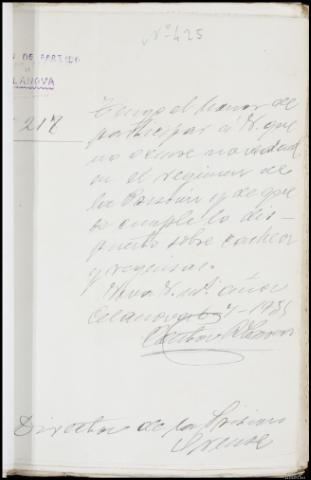 Nº 425
N DE PARTIDO
DE
LANOVA
217
Tengo el honor de
participar á V. que
no ocurre novedad
en el regimen de
la Prisión y de que
se cumple lo dis-
puesto sobre cacheos
y requisas.
Viva V. m.s años
Celanova 6-7-1935
Director de la Prision
Orense